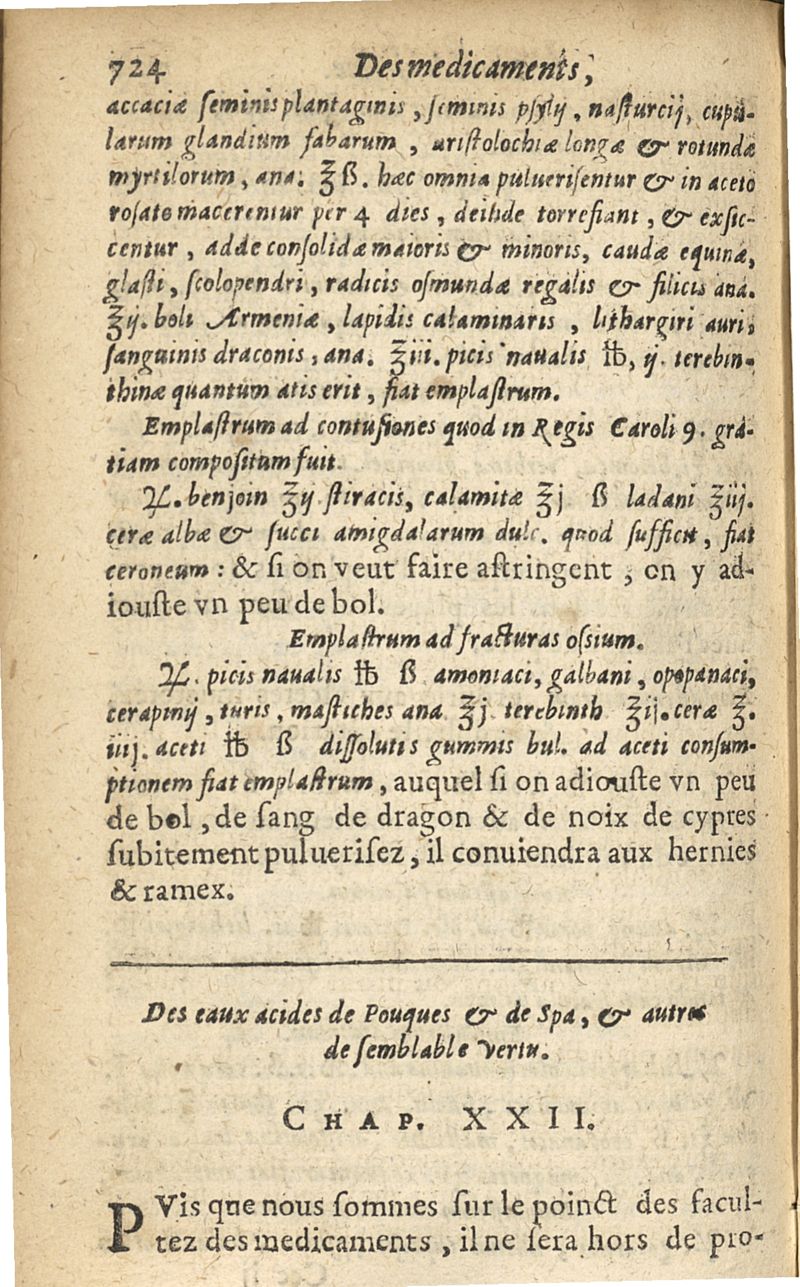 724 Des medicaments,
accaciæ ſeminis plantaginis, ſeminis pſylij, naſturcij, cupu-
larum glandium fabarum, ariſtolochiæ longæ & rotundæ
myrtilorum, ana. ℥ ß. hæc omnia pulueriſentur & in aceto
roſato macerentur per 4 dies, deinde torrefiant, & exſic-
centur, adde conſolidæ maioris & minoris, caudæ equinæ,
glaſti, ſcolopendri, radicis oſmundæ regalis & filicis ana.
℥ij. boli Armeniæ, lapidis calaminaris, lithargiri auri,
ſanguinis draconis, ana. ℥iii. picis naualis ℔, ij. terebin-
thinæ quantum atis erit, fiat emplaſtrum.
Emplaſtrum ad contuſiones quod in Regis Caroli 9. gra-
tiam compoſitum fuit.
♃. benjoin ℥ij ſtiracis, calamitæ ℥j ß ladani ℥iij.
ceræ albæ & ſucci amigdalarum dulc. quod ſufficit, fiat
ceroneum: & ſi on veut faire aſtringent, on y ad-
iouſte vn peu de bol.
Emplaſtrum ad fracturas oſsium.
♃. picis naualis ℔ ß amoniaci, galbani, opopanaci,
cerapinij, turis, maſtiches ana ℥j. terebinth ℥ij. ceræ ℥.
iiij. aceti ℔ ß diſſolutis gummis bul. ad aceti conſum-
ptionem fiat emplaſtrum, auquel ſi on adiouſte vn peu
de bol, de ſang de dragon & de noix de cypres
ſubitement pulueriſez, il conuiendra aux hernies
& ramex.
Des eaux acides de Pouques & de Spa, & autres
de ſemblable vertu.
CHAP. XXII.
PVis que nous ſommes ſur le poinct des facul-
tez des medicaments, il ne ſera hors de pro-